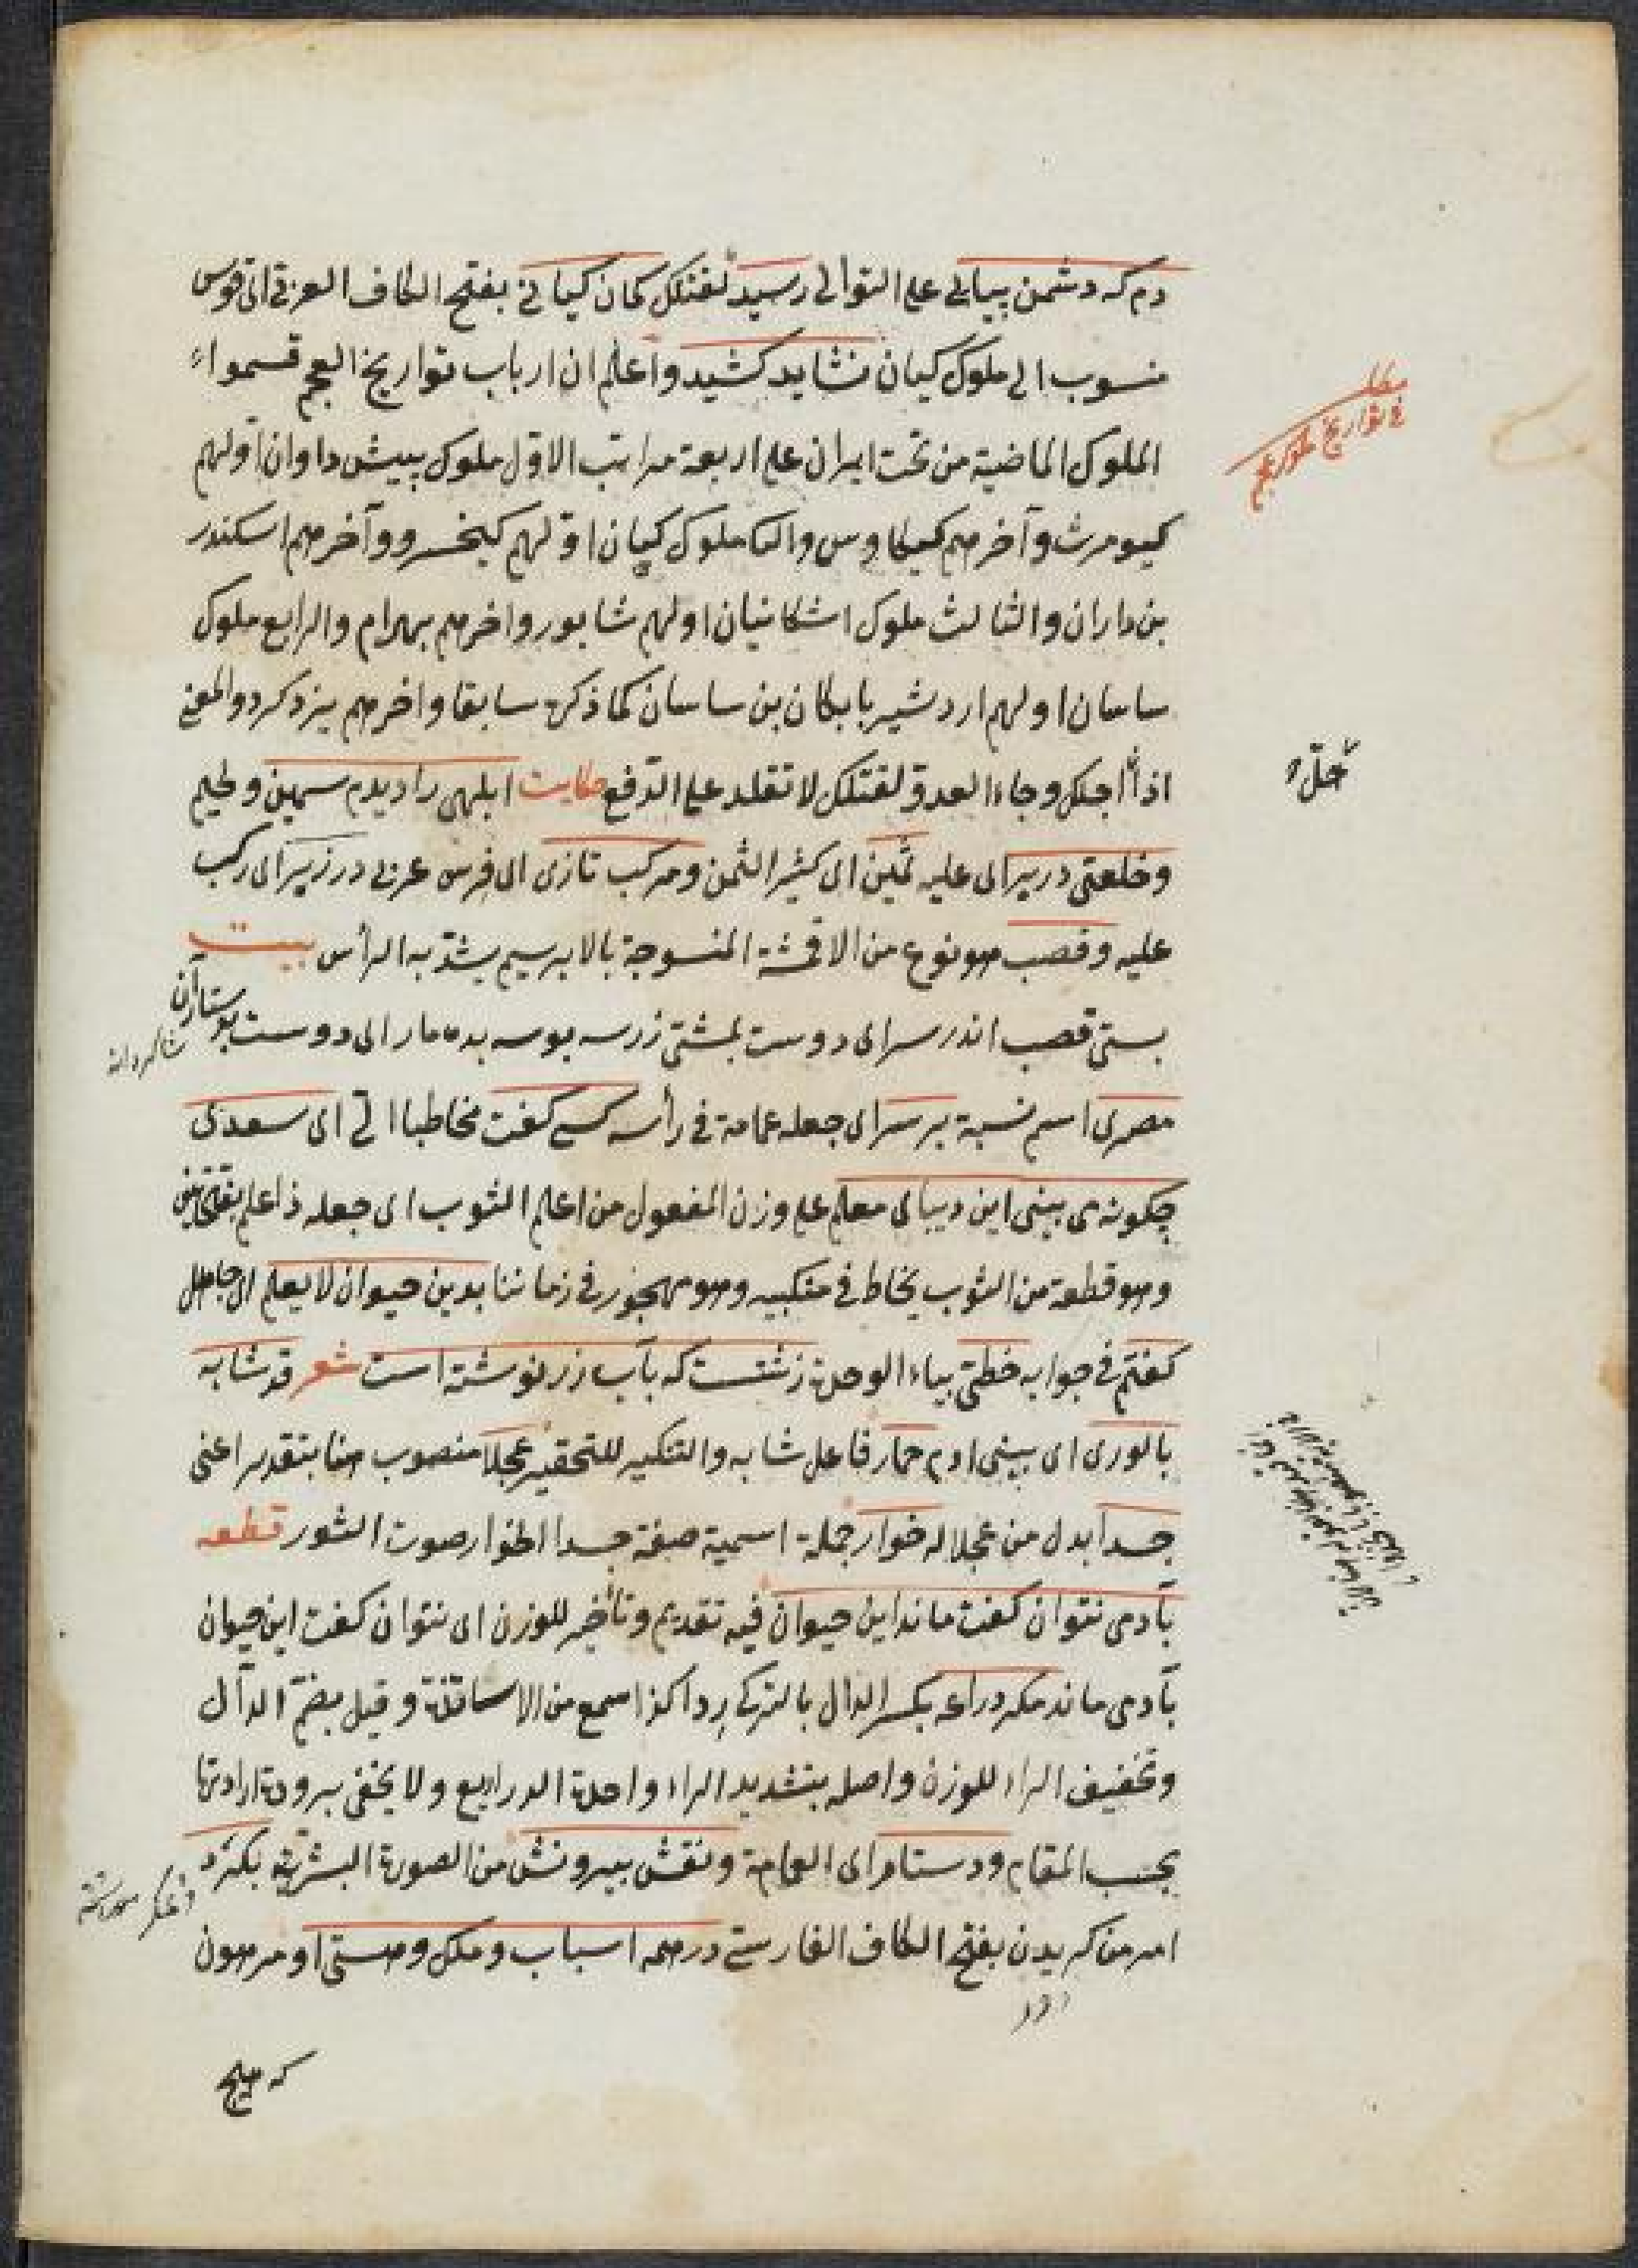 دم که دشمن پیاپی علی التوالی رسید لقتلک کمان کیانی بفتح الکاف العربی ای قوس
منسوب الی ملوک کیان نشاید کشید واعلم ان ارباب تواریخ العجم قسموا
الملوک الماضیة من تخت ایران علی اربعة مراتب الاول ملوک پیش داوان اولهم
کیومرث وآخرهم کیکاوس والثانی ملوک کیان اولهم کیخسرو وآخرهم اسکندر
بن داران والثالث ملوک اشکانیان اولهم شابور واخرهم بهرام والرابع ملوک
ساسان اولهم اردشیر بابکان بن ساسان کما ذکر سابقا واخرهم یزدکرد والمعنی
اذا اجلک وجاء العدو لقتلک لا تقدر علی الدفع حکایت ابلهی را دیدم سمین ولحیم
وخلعتی در بر ای علیه ثمین ای کثیر الثمن ومرکب تازی ای فرس عربی در زیر ای رکب
علیه وقصب هو نوع من الاقمشة المنسوجة بالابریسم یشد به الرأس بیت
بستی قصب اندر سر ای دوست بمشتی زر سه بوسه بده مارا ای دوست
مصری اسم نسبة بر سر ای جعله عمامة فی رأسه کسی کفت مخاطبا الی ای سعدی
چکونه می بینی این دیبای معلم علی وزن المفعول من اعلم الثوب ای جعله ذا علم بفتحتین
وهو قطعة من الثوب یخاط فی منکبیه وهو مهجور فی زماننا بدین حیوان لا یعلم ای جاهل
کفتم فی جوابه خطی بیاء الوحدة زشتست که بآب زر نوشته است شعر قد شابه
بالوری ای ببنی ادم حمار فاعل شابه والتنکیر للتحقیر عجلا منصوب هنا بتقدیر اعنی
جسدا بدل من عجلا له خوار جملة اسمیة صفة جسدا الخوار صوت الثور قطعه
بآدمی نتوان کفت ماند این حیوان فیه تقدیم وتأخیر للوزن ای نتوان کفت این حیوان
بآدمی ماند مکر دراعه بکسر الدال بالترکی ردا کذا سمع من الاساتذة وقیل بضم الدال
وتخفیف الراء للوزن واصله بتشدید الراء واحدة الدراریع ولا یخفی برودة ارادتها
بحسب المقام ودستار ای العمامة ونقش بیرونش من الصورة البشریة بکرد
امر من کریدن بفتح الکاف الفارسی در همه اسباب وملک وهستی او مرهون
که هیچ